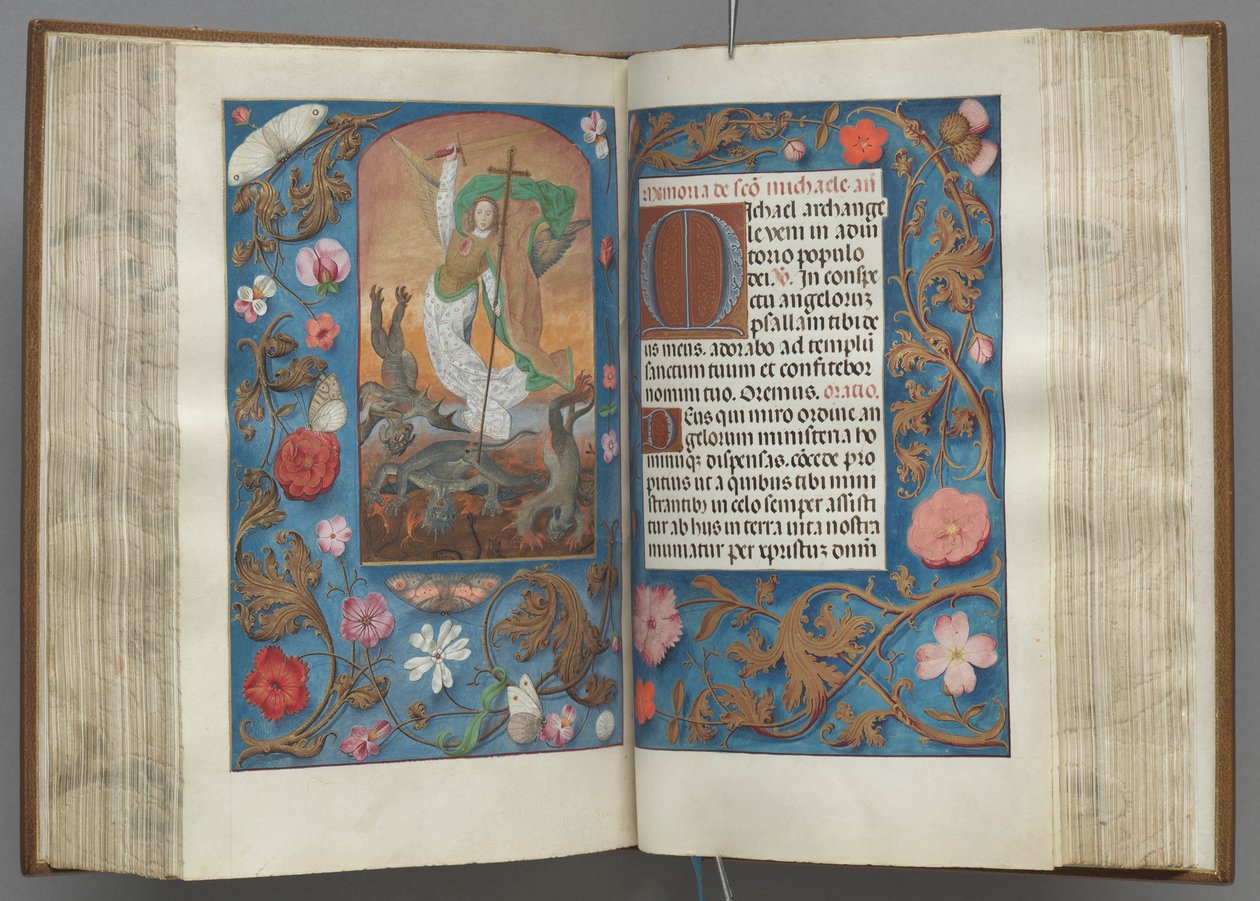 168
Memoria de scō michaele. añ
Michael archange
le veni in adiu
torio populo
dei. ℣. In conspe
ctu angeloruz
psallam tibi de
us meus. adorabo ad templū
sanctum tuum et confitebor
nomini tuo. Oremus. oratio.
Deus qui miro ordine an
gelorum ministeria ho
minūqz dispensas. cōcede pro
pitius ut a quibus tibi mini
strantibz in celo semper assisti
tur ab hijs in terra uita nostra
muniatur per xpristuz dnm̄